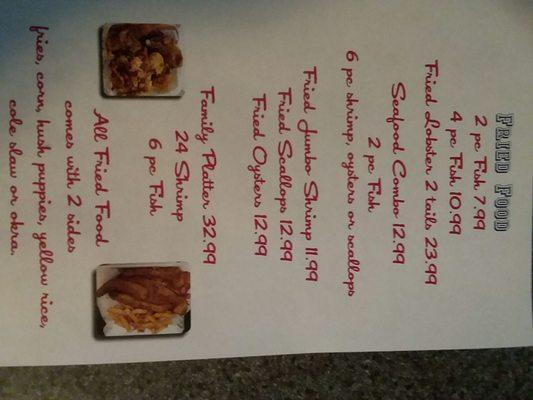 FRIED FOOD
2 pc Fish 7.99
4 pc Fish 10.99
Fried Lobster 2 tails 23.99
Seafood Combo 12.99
2 pc Fish
6 pc shrimp, oysters or scallops
Fried Jumbo Shrimp 11.99
Fried Scallops 12.99
Fried Oysters 12.99
Family Platter 32.99
24 Shrimp
6 pc Fish
All Fried Food
comes with 2 sides
fries, corn, hush puppies, yellow rice,
cole slaw or okra.